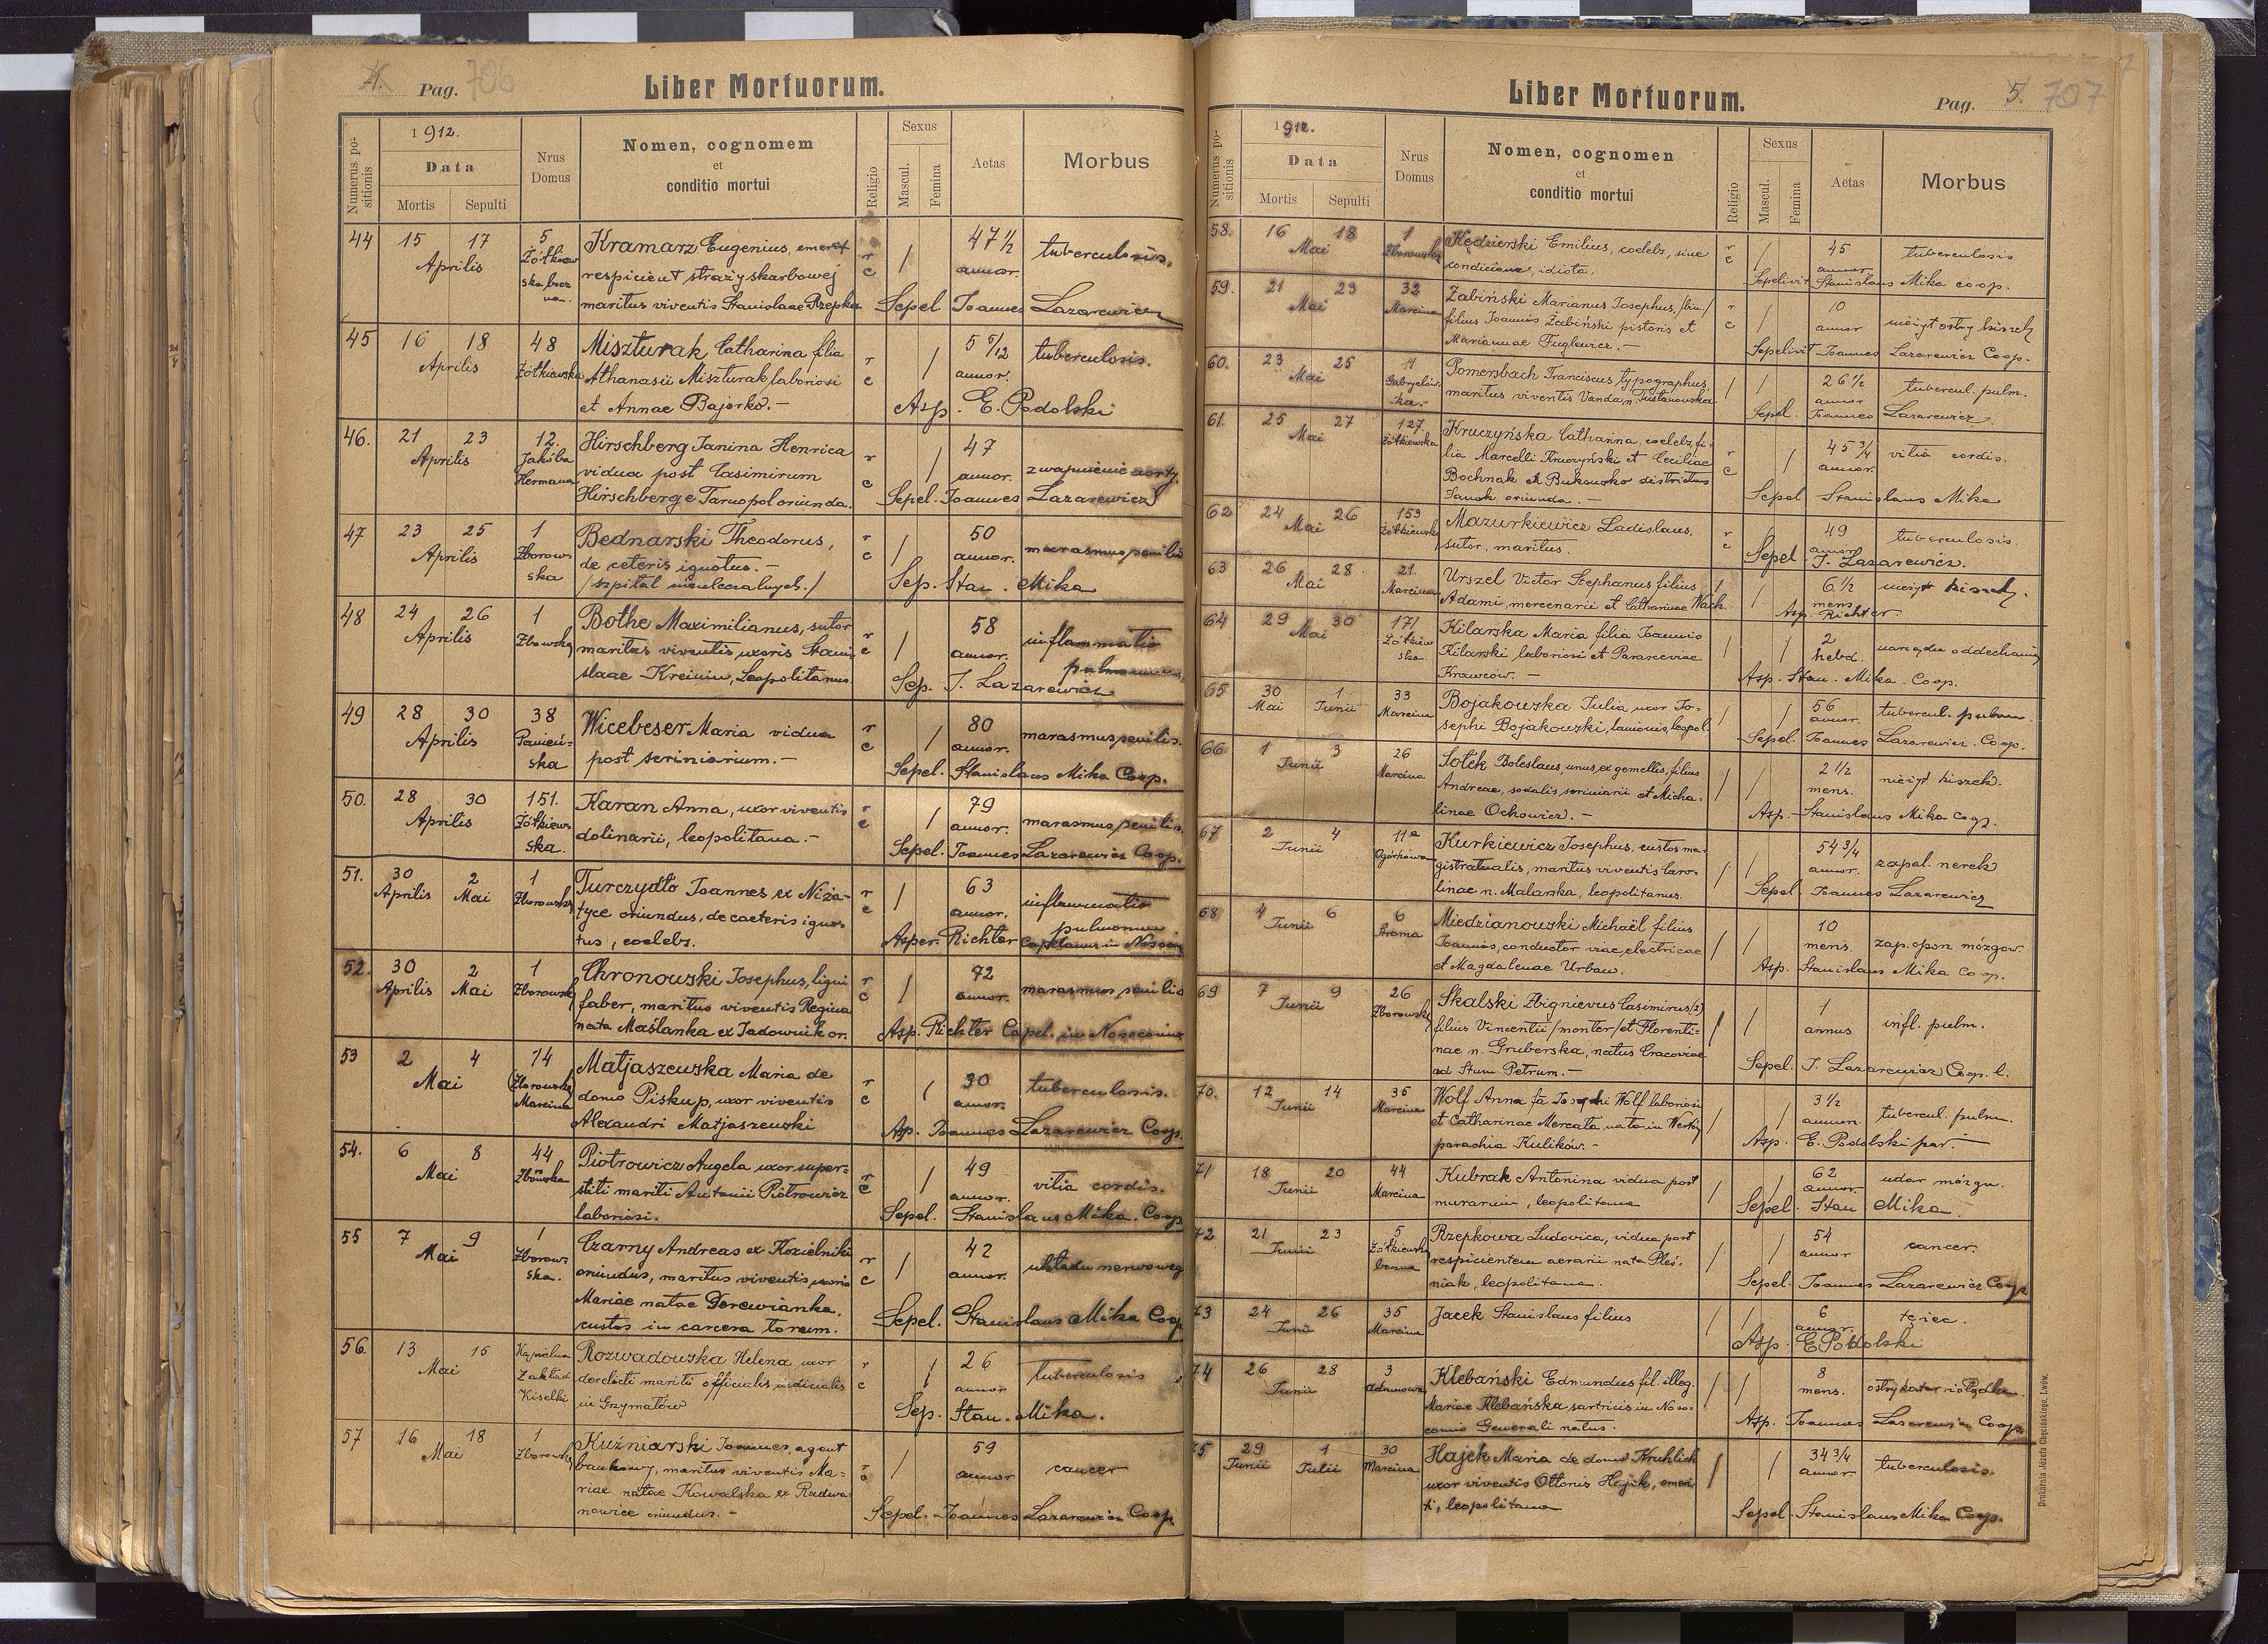 4. Pag. 706
Liber Mortuorum.
Numerus positionis
1912.
Data
Mortis Sepulti
Nrus Domus
Nomen, cognomem
et
conditio mortui
Religio
Sexus
Mascul. Femina
Aetas
Morbus
44 15 17 Aprilis 5
Kramarz Eugenius, emeryt
respicient straży skarbowej
maritus viventis Stanislaae Rzepka
r c / 47 1/2 annor. tuberculosis.
Sepel Joannes Lazarewicz
45 16 18 Aprilis 48 Żółkiewska
Miszturak Catharina filia
Athanasii Miszturak laboriosi
et Annae Bajorko.-
r c / 5 5/12 annor. tuberculosis.
Asp. E. Podolski
46. 21 23 Aprilis 12. Jakóba Hermana
Hirschberg Janina Henrica
vidua post Casimirum
Hirschberg e Tarnopol oriunda.
r c / 47 annor. zwapnienie aorty.
Sepel. Joannes Lazarewicz
47 23 25 Aprilis 1 Zborowska
Bednarski Theodorus,
de ceteris ignotus.-
/szpital nieuleczalnych./
r c / 50 annor. marasmus senilis
Sep. Stan. Mika
48 24 26 Aprilis 1
Bothe Maximilianus, sutor
maritus viventis uxoris Stani-
slaae Kreinin, Leopolitanus.
r c / 58 annor. inflammatio pulmonum
Sep. J. Lazarewicz
49 28 30 Aprilis 38 Panieńska
Wicebeser Maria vidua
post seriniarium.-
r c / 80 annor. marasmus senilis.
Sepel. Stanislaus Mika Coop.
50. 28 30 Aprilis 151. Żółkiewska.
Karan Anna, uxor viventis
dolinarii, leopolitana.-
r c / 79 annor. marasmus senilis.
Sepel. Joannes Lazarewicz Coop.
51. 30 Aprilis 2 Mai 1 Zborowska
Turczydło Joannes ex Niża-
tyce oriundus, de caeteris igno-
tus, coelebs.
r c / 63 annor. inflammatio pulmonum
Asper. Richter Capelanus in Nosocom
52. 30 Aprilis 2 Mai 1 Zborowsk
Chronowski Josephus, ligni
faber, maritus viventis Regina
nata Maślanka ex Jadownik or.
r c / 72 annor. marasmus senilis
Asp. Richter Capel. in Nosocomio
53 2 4 Mai 14 (Zborowska) Marcina
Matjaszewska Maria de
domo Piskup, uxor viventis
Alexandri Matjaszewski
r c / 30 annor. tuberculosis.
Asp. Joannes Lazarewicz Coop.
54. 6 8 Mai 44
Piotrowicz Angela uxor super-
stiti mariti Antonii Piotrowicz
laboriosi.
r c / 49 annor. vitia cordis.
Sepel. Stanislaus Mika. Coop
55 7 9 Mai 1 Zborowska.
Czarny Andreas ex Kozielniki
oriundus, maritus viventis uxoris
Mariae natae Derewianka,
custos in carcera torum.
r c / 42 annor. układu nerwoweg
Sepel. Stanislaus Mika Coop
56. 13 15 Mai Zakład Kiselki
Rozwadowska Helena uxor
derelicti mariti officialis iudicialis
in Grzymałów
r c / 26 annor tuberculosis
Sep. Stan. Mika.
57 16 18 Mai 1 Zborowsk
Kuźniarski Joannes, agent
bankowy, maritus viventis Ma-
riae natae Kowalska ex Radwa-
nowice oriundus.-
r c / 59 annor cancer
Sepel. Joannes Lazarewicz Coop.
Liber Mortuorum.
Pag. 5. 707
Numerus positionis
1912.
Data
Mortis Sepulti
Nrus Domus
Nomen, cognomen
et
conditio mortui
Religio
Sexus
Mascul. Femina
Aetas
Morbus
58. 16 18 Mai 1 Zborowska
Kędzierski Emilius, coelebs, sine
condicione, idiota.
r c / 45 annor tuberculosis
Sepelivit Stanislaus Mika coop.
59. 21 23 Mai 32 Marcina
Żabiński Marianus Josephus, /bin./
filius Joannis Żabiński pistoris et
Mariannae Fuglewicz.-
r c / 10 annor nieżyt ostry kiszek
Sepelivit Joannes Lazarewicz Coop.
60. 23 25 Mai 11
Pomersbach Franciscus typographus,
maritus viventis Vanda n. Tustanowska
/ / 26 1/2 annor tubercul. pulm.
Sepel. Joannes Lazarewicz.
61. 25 27 Mai 127 Żółkiewska
Kruczyńska Catharina, coelebs, fi-
lia Marcelli Kruczyński et Ceciliae
Bochnak ex Bukowsko districtus
Sanok oriunda.-
r c / 45 3/4 annor. vitia cordis.
Sepel Stanislaus Mika
62 24 26 Mai 153 Żółkiewska
Mazurkiewicz Ladislaus,
sutor, maritus.
r c / 49 annor tuberculosis.
Sepel J. Lazarewicz.
63 26 28 Mai 21. Marcina
Urszel Victor Stephanus filius
Adami, mercenarii et Catharinae Wach.
/ / 6 1/2 mens nieżyt kiszek.
Asp. Richter.
64 29 30 Mai 171 Żółkiewska
Kilarska Maria filia Joannis
Kilarski laboriosi et Parasceviae
Krawców.-
/ / 2 hebd. narządu oddechania
Asp. Stan. Mika. Coop.
65 30 Mai 1 Junii 33 Marcina
Bojakowska Julia uxor Jo-
sephi Bojakowski, lanionis, leopol.
/ / 56 annor. tubercul. pulm.
Sepel. Joannes Lazarewicz. Coop.
66. 1 3 Junii 26 Marcina
Sołek Boleslaus, unus ex gemellis, filius
Andreae, sodalis scriniarii et Micha-
linae Ochowicz.-
/ / 2 1/2 mens. nieżyt kiszek.
Asp. Stanislaus Mika Coop.
67 2 4 Junii 11a Ogórkowa
Kurkiewicz Josephus, custos ma-
gistratualis, maritus viventis Caro-
linae n. Malarska, leopolitanus.
/ / 54 3/4 annor. zapal. nerek
Sepel. Joannes Lazarewicz
68 4 6 Junii 6 Stroma
Miedzianowski Michaël filius
Joannis, conductor viae electricae
et Magdalenae Urban.
/ / 10 mens. zap. opon mózgow.
Asp. Stanislaus Mika Coop.
69 7 9 Junii 26 Zborowsk
Skalski Zbignievus Casimirus (2)
filius Vincentii /monter/ et Florenti-
nae n. Gruberska, natus Cracoviae
ad Stum Petrum.-
/ / 1 annus infl. pulm.
Sepel. J. Lazarewicz Coop. l.
70. 12 14 Junii 35 Marcina
Wolf Anna fa Josephi Wolf laboriosi
et Catharinae Mercata nata in
parochia Kulików.-
/ / 3 1/2 annor. tubercul. pulm.
Asp. E. Podolski par.
71 18 20 Junii 44 Marcina
Kubrak Antonina vidua post
murarium, leopolitana
/ / 62 annor. udar mózgu.
Sepel. Stan Mika.
72 21 23 Junii 5
Rzepkowa Ludovica, vidua post
respicientem aerarii nata Pleś-
niak, leopolitana.
/ / 54 annor cancer.
Sepel. Joannes Lazarewicz Coop
73 24 26 Junii 35 Marcina
Jacek Stanislaus filius
/ / 6 annor. tężec.
Asp. E Podolski
74 26 28 Junii 3 Adamowa
Klebański Edmundus fil. illeg.
Mariae Klebańska sartricis in Noso-
comio Generali natus.
/ / 8 mens. ostry katar żołądka.
Asp. Joannes Lazarewicz Coop.
75 29 Junii 1 Julii 30 Marcina
Hajek Maria de domo Kruhlich
uxor viventis Ottonis Hajek, emeri-
ti, leopolitana
/ / 34 3/4 annor. tuberculosis.
Sepel. Stanislaus Mika Coop.
Drukarnia Józefa Chęcińskiego, Lwów.